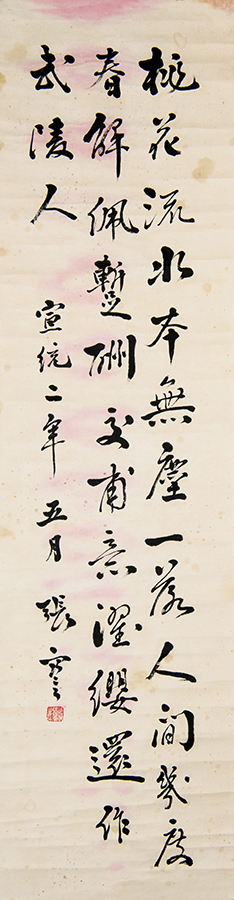 桃花流水本無塵一落人間幾度
春解佩蹔酬交甫意濯纓還作
武陵人
宣統二年五月張謇